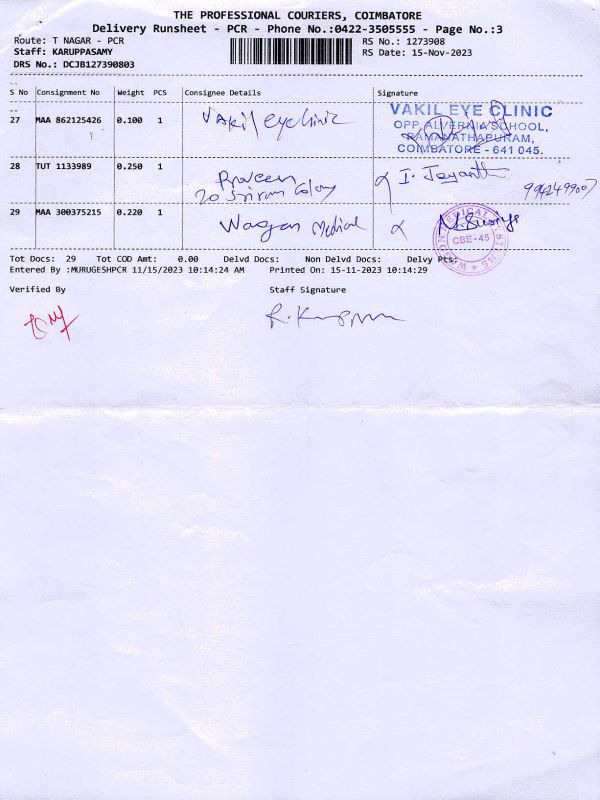 THE PROFESSIONAL COURIERS, COIMBATORE
Delivery Runsheet - PCR - Phone No.:0422-3505555 - Page No.:3
Route: T NAGAR - PCR RS No.: 1273908
Staff: KARUPPASAMY RS Date: 15-Nov-2023
DRS No.: DCJB127390803
S No Consignment No Weight PCS Consignee Details Signature
27 MAA 862125426 0.100 1 VAkil eyeclinic
VAKIL EYE CLINIC
OPP.ALVERNIA SCHOOL,
RAMANATHAPURAM,
COIMBATORE - 641 045.
28 TUT 1133989 0.250 1 Praveen I. Jayanthi
20 Sriram Colony
29 MAA 300375215 0.220 1 Wagan Medical
CBE-45
Tot Docs: 29 Tot COD Amt: 0.00 Delvd Docs: Non Delvd Docs: Delvy Pts:
Entered By :MURUGESHPCR 11/15/2023 10:14:24 AM Printed On: 15-11-2023 10:14:29
Verified By Staff Signature